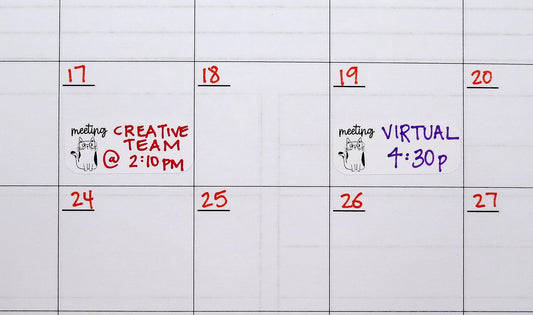 17
18
19
20
meeting
CREATIVE
TEAM
@ 2:10 PM
meeting
VIRTUAL
4:30p
24
25
26
27